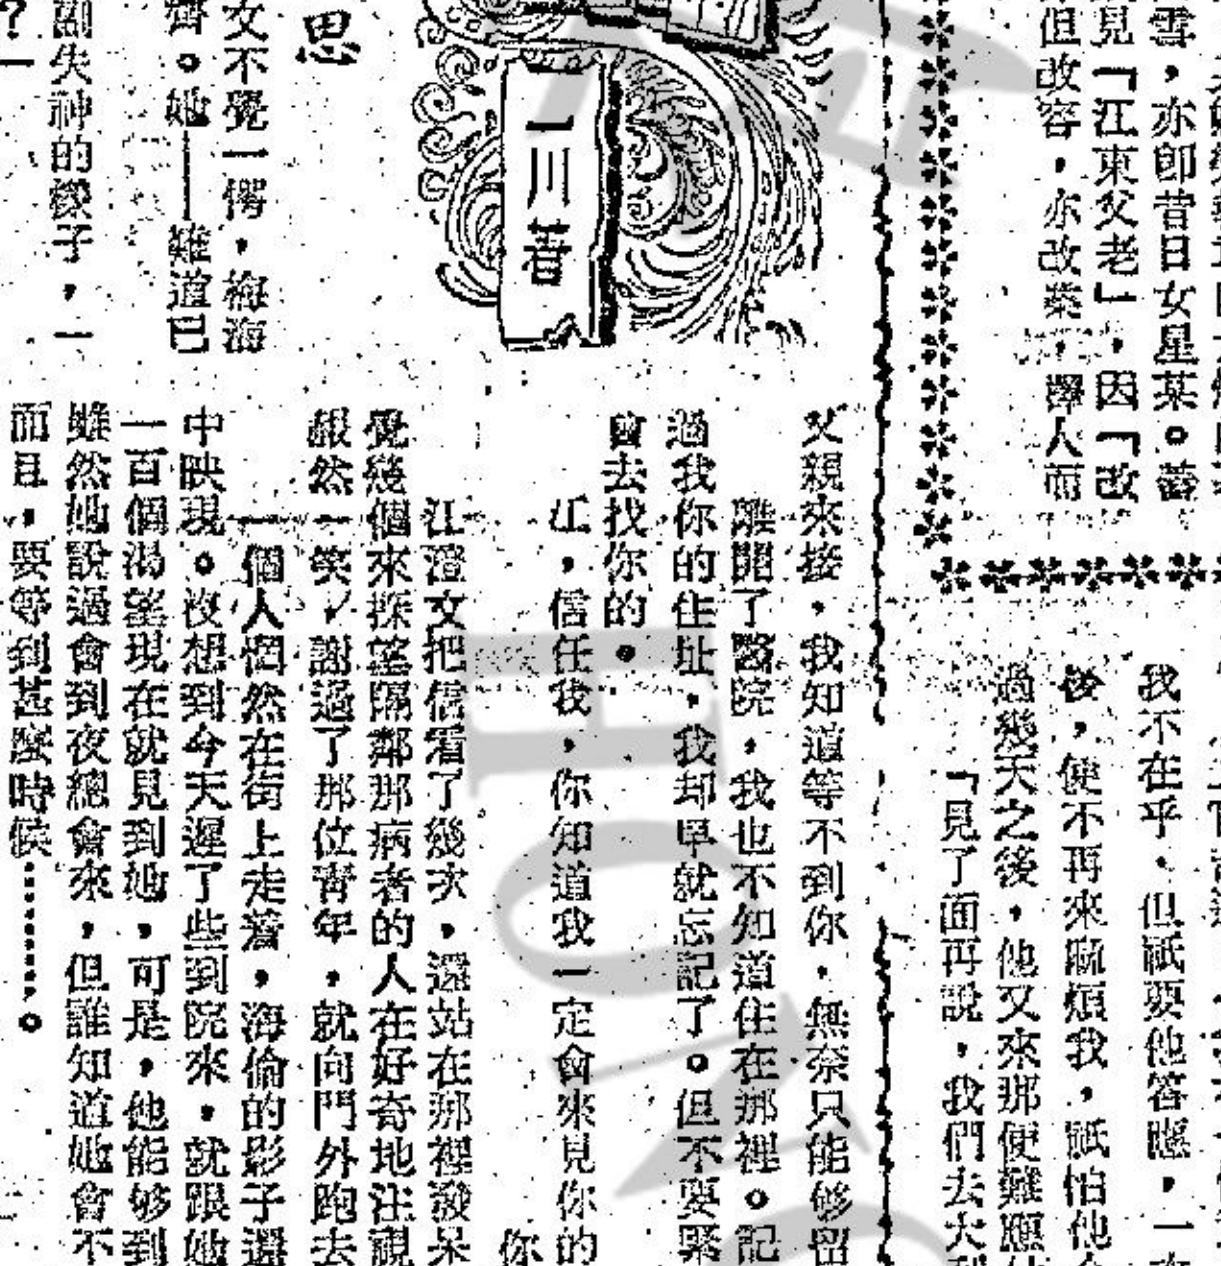 雪，亦卽昔日女星某。蓄
見「江東父老」，因「改
但改容，亦改業，擇人而
我不在乎。但祇要他答應，一
後，便不再來麻煩我，祇怕他
過幾天之後，他又來那便難應
「見了面再說，我們去大
思
一川著
女不覺一愕，梅海
齊。她——難道已
副失神的樣子，一
？—
父親來接，我知道等不到你，無奈只能够留
離開了醫院，我也不知道住在那裡。記
過我你的住址，我却早就忘記了。但不要緊
會去找你的。
江，信任我，你知道我一定會來見你的
你
江澄文把信看了幾次，還站在那裡發呆
覺幾個來探望隔鄰那病者的人在好奇地注視
赧然一笑，謝過了那位靑年，就向門外跑去
一個人惘然在街上走着，海倫的影子還
中映現。沒想到今天遲了些到院來，就跟她
一百個渴望現在就見到她，可是，他能够到
雖然她說過會到夜總會來，但誰知道她會不
而且，要等到甚麼時候………。